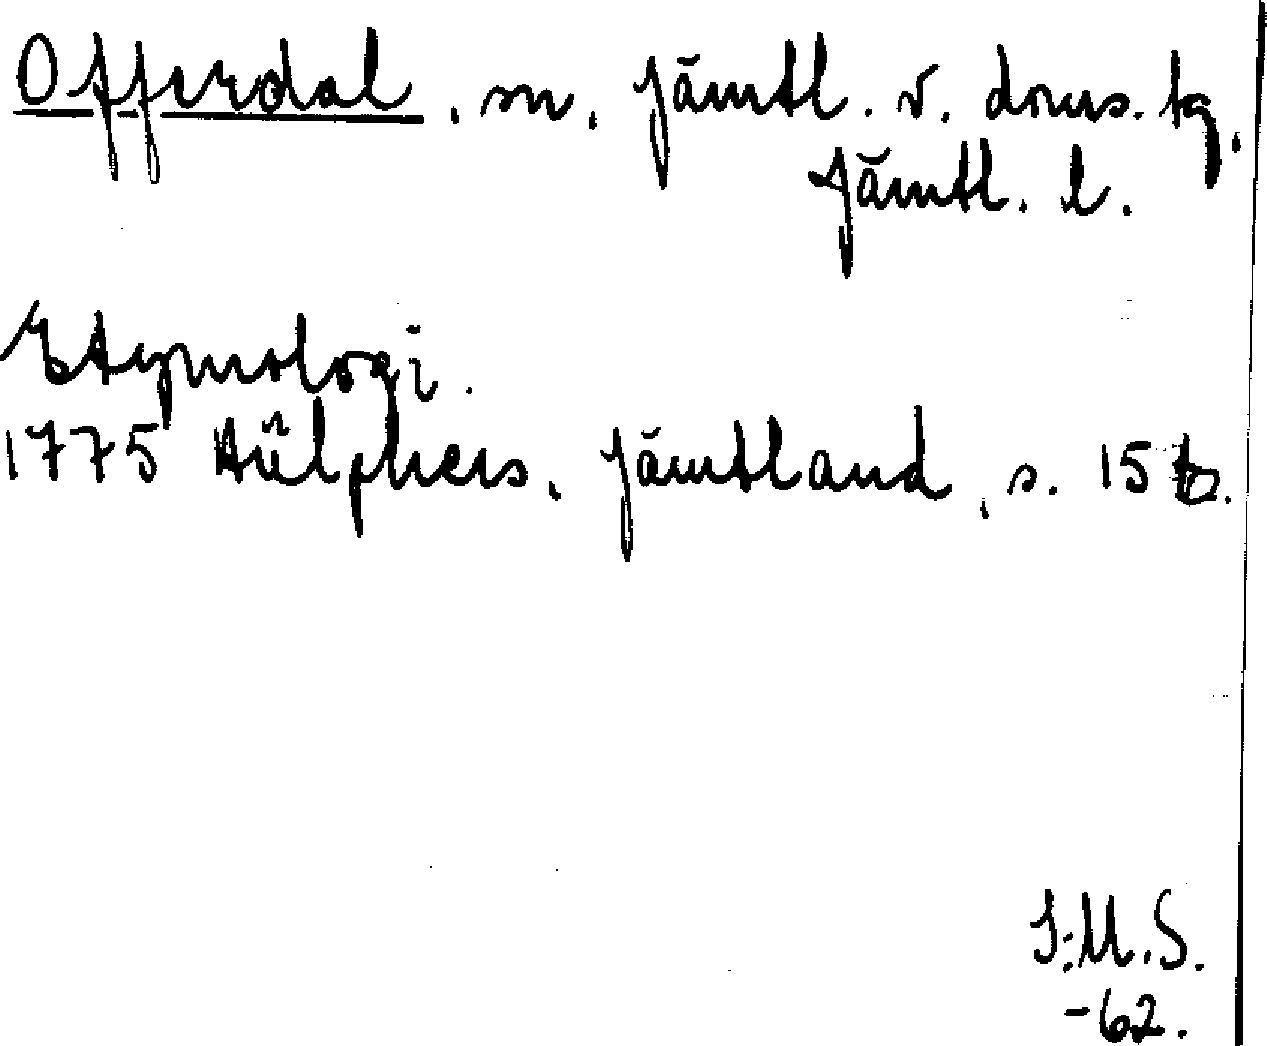 Offerdal, sn, Jämtl. v. doms. tg,
Jämtl. l.
Etymologi.
1775 Hülphers, Jämtland, s. 15
I:M.S.
-62.